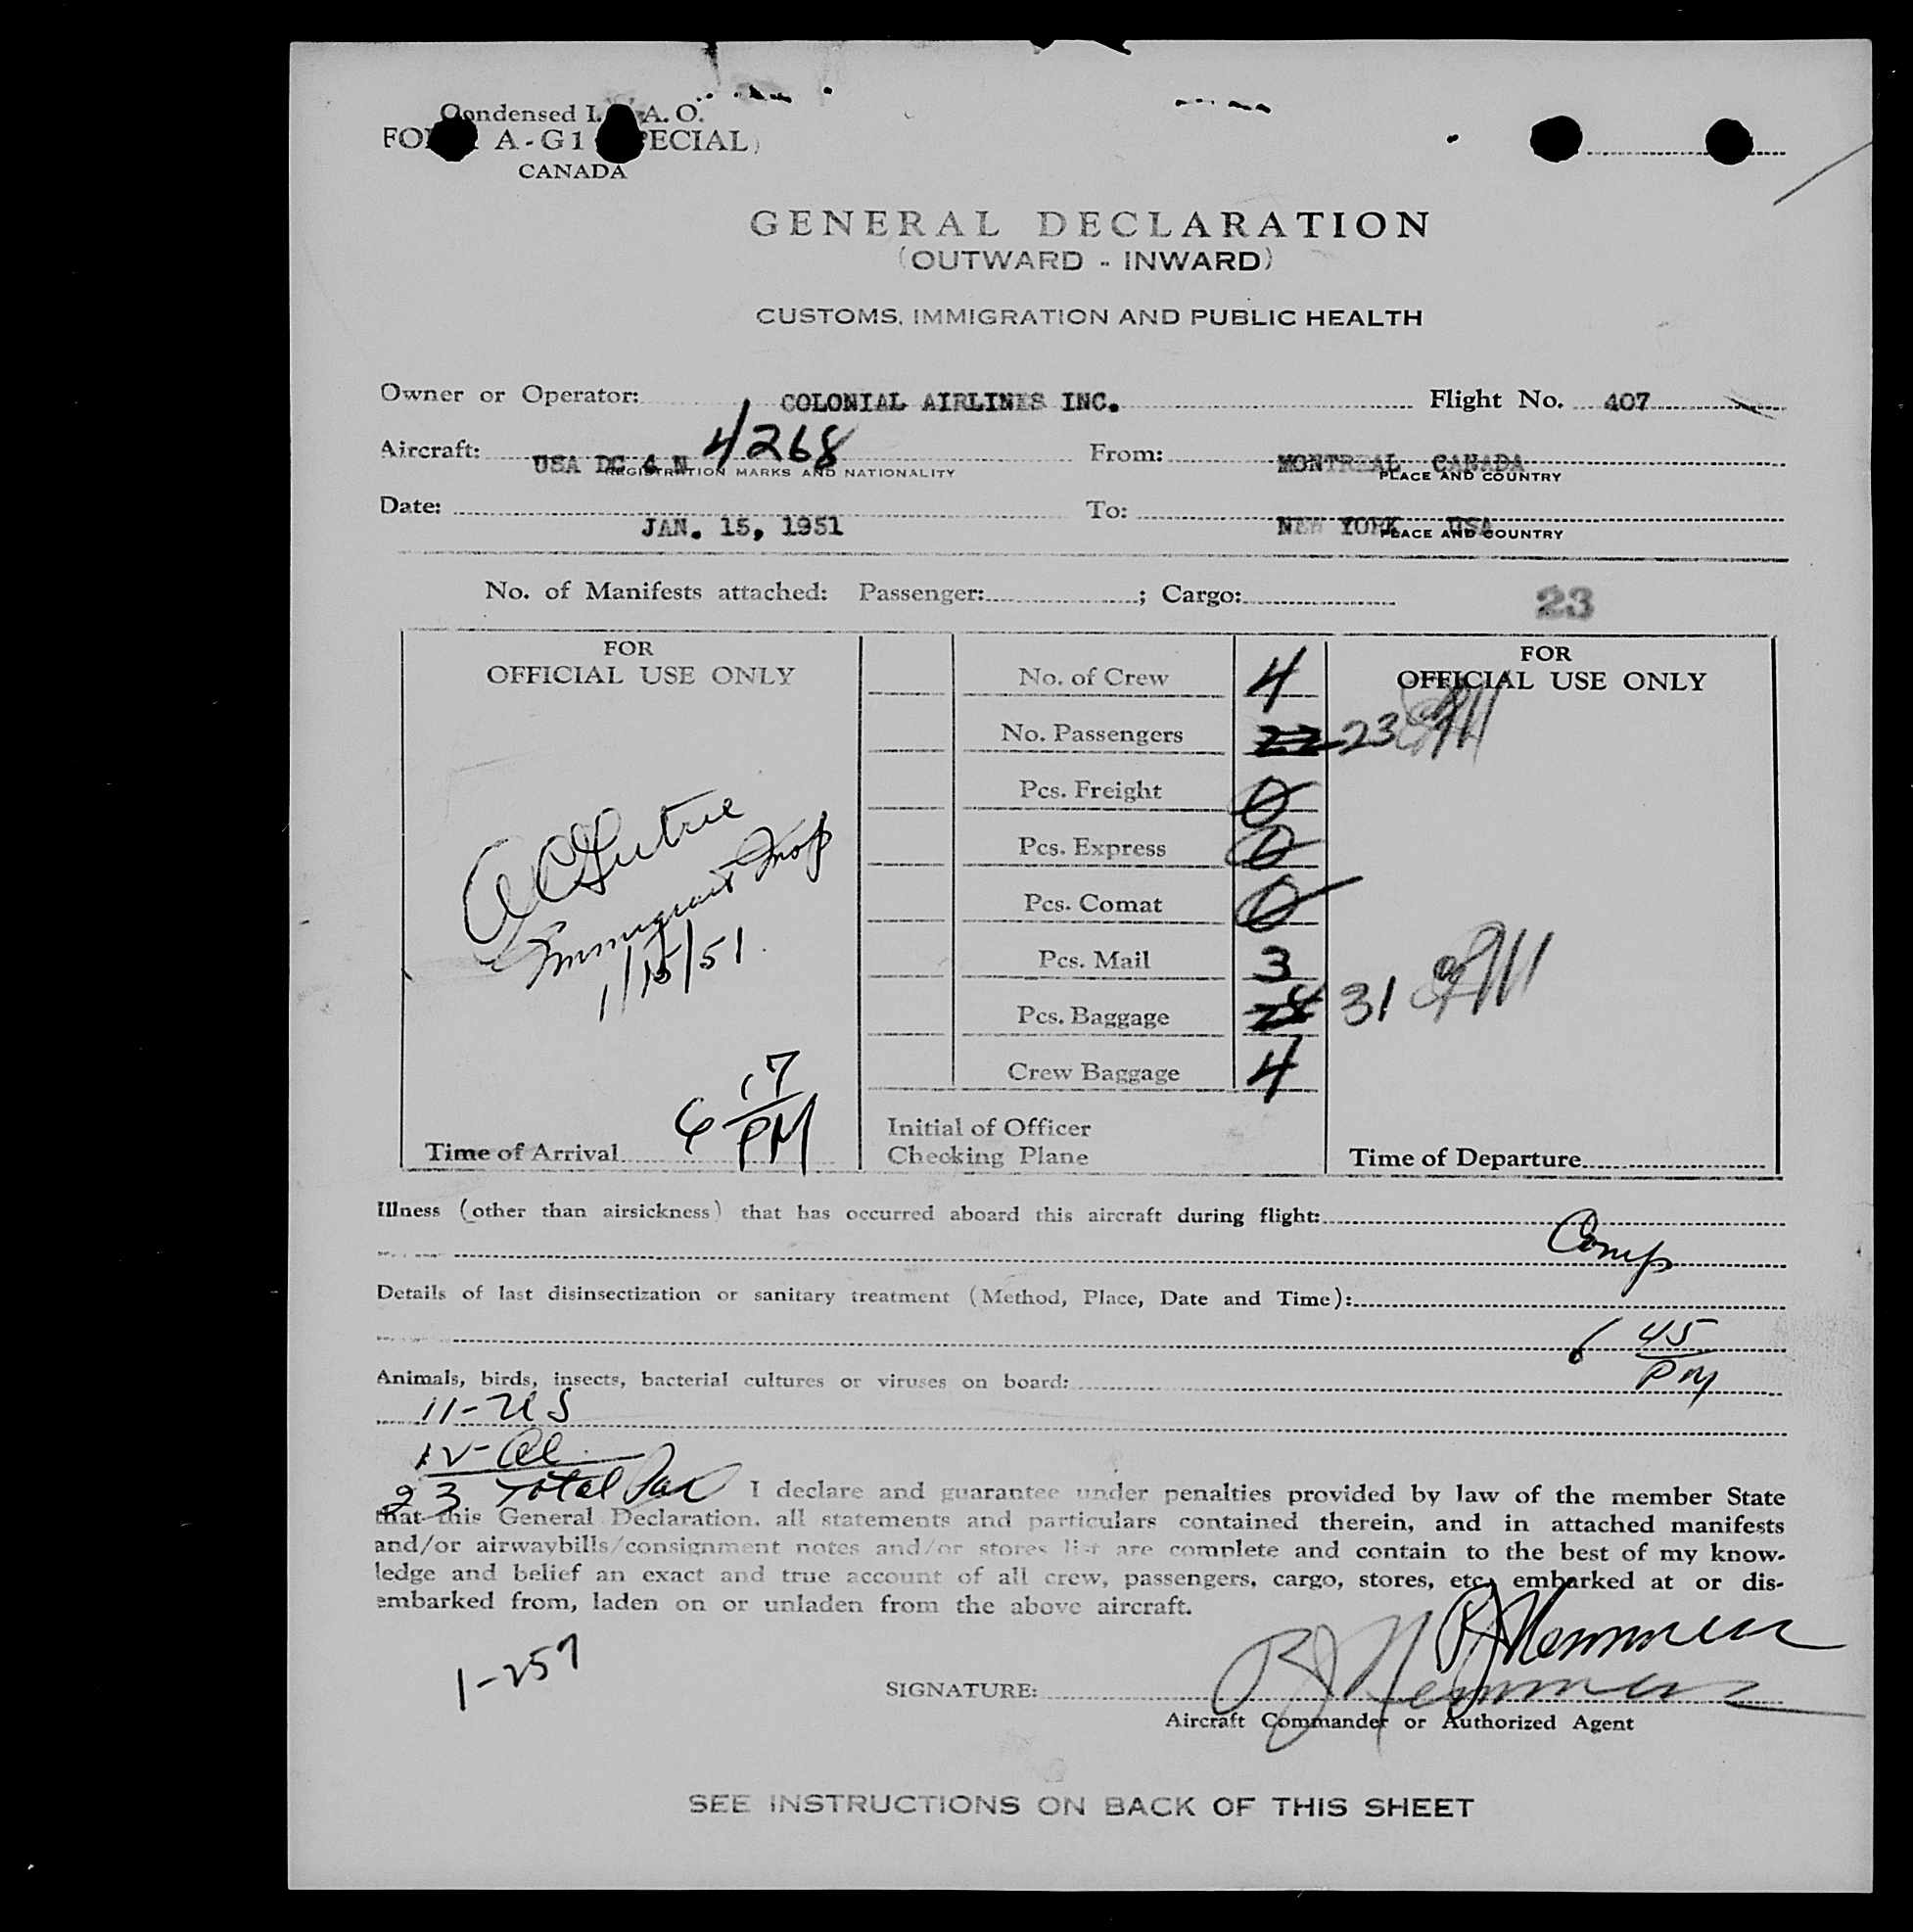 Condensed I. A. O.
A-G1
CANADA
GENERAL DECLARATION
(OUTWARD - INWARD)
CUSTOMS, IMMIGRATION AND PUBLIC HEALTH
Owner or Operator: COLONIAL AIRLINES INC. Flight No. 407
Aircraft: USA DC 4 N 4268 From: MONTREAL CANADA
REGISTRATION MARKS AND NATIONALITY PLACE AND COUNTRY
Date: JAN. 15, 1951 To: NEW YORK USA
PLACE AND COUNTRY
No. of Manifests attached: Passenger: ; Cargo: 23
FOR
OFFICIAL USE ONLY
No. of Crew 4
FOR
OFFICIAL USE ONLY
No. Passengers 22 23
Pcs. Freight 0
Pcs. Express 0
Pcs. Comat 0
Pcs. Mail 3
Pcs. Baggage 28 31
Crew Baggage 4
Immigrant Insp
1/15/51
Time of Arrival 6 17 PM
Initial of Officer
Checking Plane
Time of Departure
Illness (other than airsickness) that has occurred aboard this aircraft during flight:
Comp
Details of last disinsectization or sanitary treatment (Method, Place, Date and Time):
6 45 PM
Animals, birds, insects, bacterial cultures or viruses on board:
11-US
12-Al
23 Total Pax
I declare and guarantee under penalties provided by law of the member State
that this General Declaration, all statements and particulars contained therein, and in attached manifests
and/or airwaybills/consignment notes and/or stores list are complete and contain to the best of my know-
ledge and belief an exact and true account of all crew, passengers, cargo, stores, etc. embarked at or dis-
embarked from, laden on or unladen from the above aircraft.
1-257
SIGNATURE:
Aircraft Commander or Authorized Agent
SEE INSTRUCTIONS ON BACK OF THIS SHEET